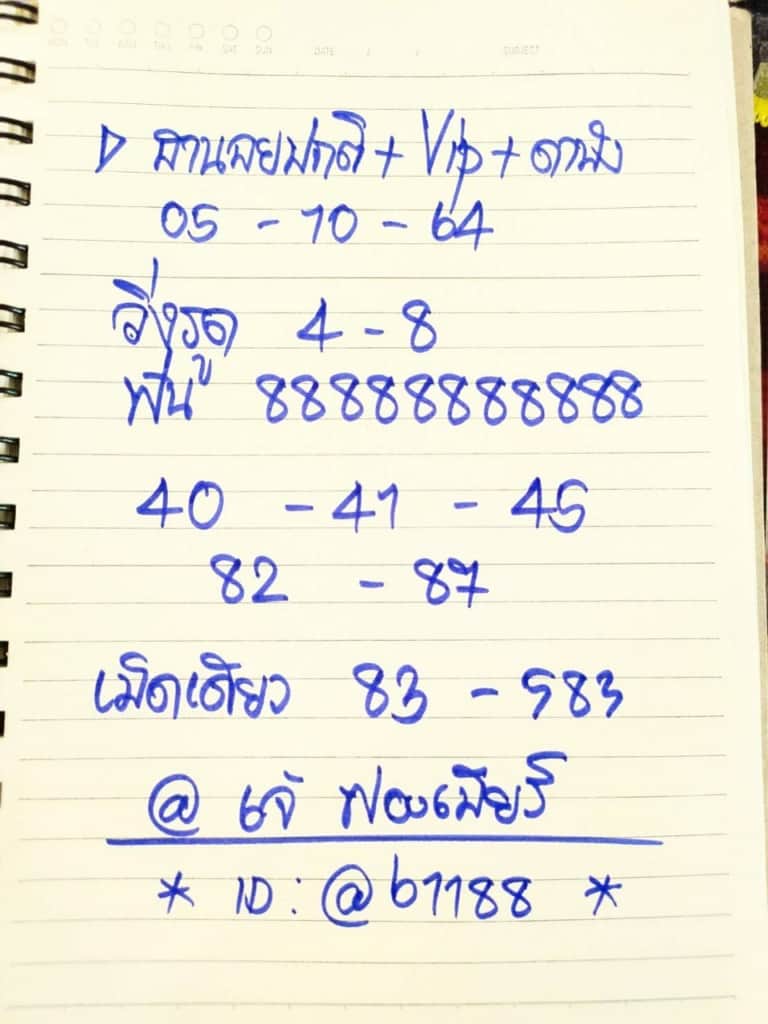 MON TUE WED THU FRI SAT SUN DATE / / SUBJECT
ฮานอยปกติ + Vip + ดานัง
05 - 10 - 64
วิ่งรูด 4 - 8
ฟัน 88888888888
40 - 41 - 45
82 - 87
เม็ดเดียว 83 - 583
@ เจ๊ ฟองเบียร์
* ID : @b1188 *